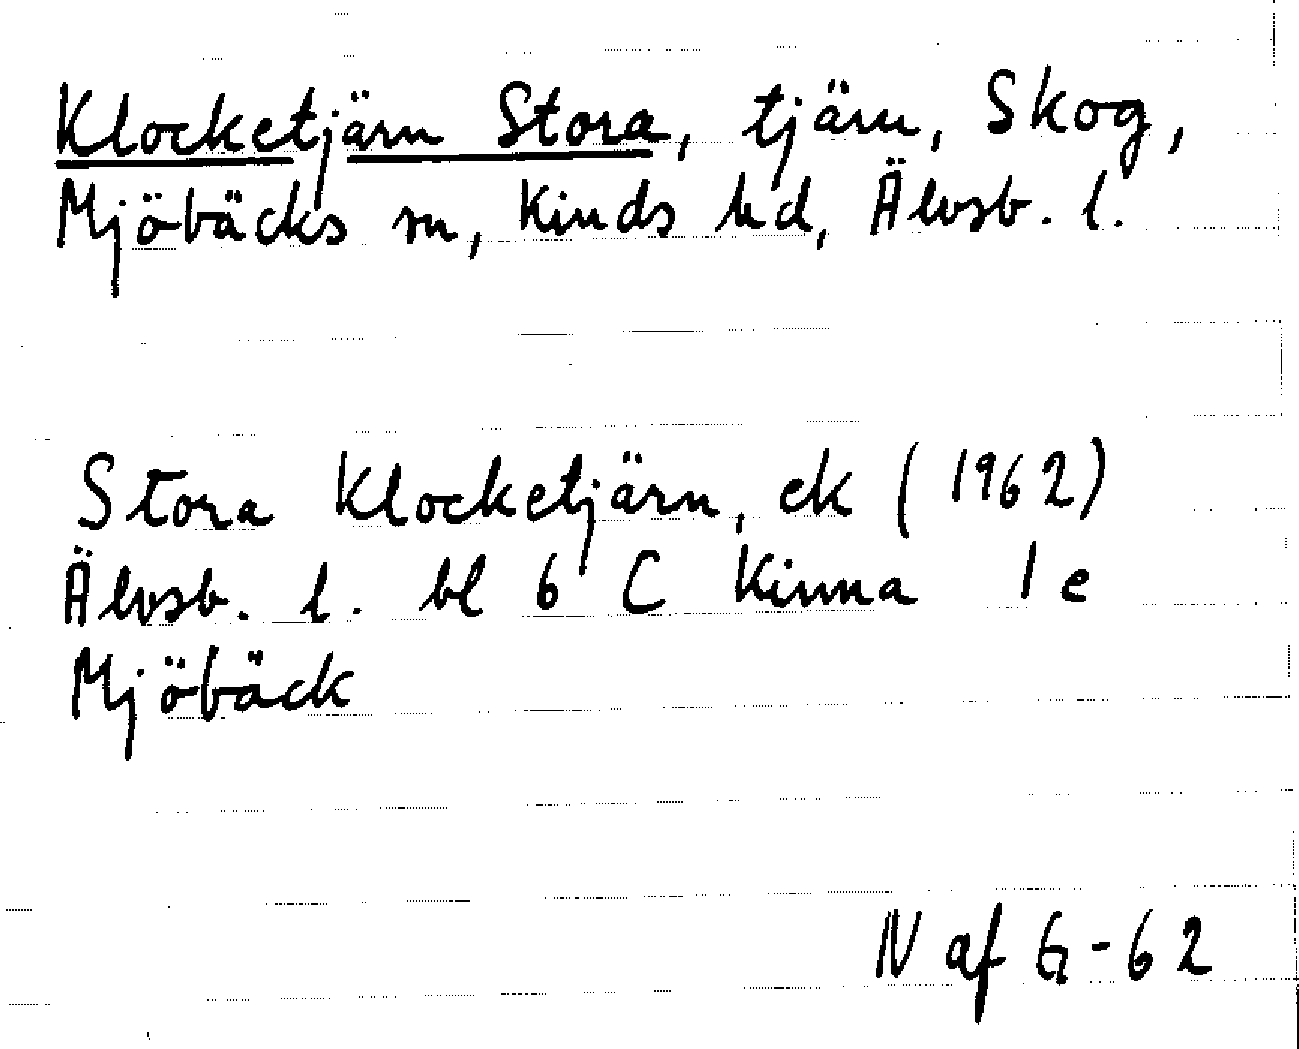 Klocketjärn Stora, tjärn, Skog,
Mjöbäcks sn, Kinds hd, Älvsb. l.
Stora Klocketjärn, ek (1962)
Älvsb. l. bl 6 C Kinna 1 e
Mjöbäck
N af G-62